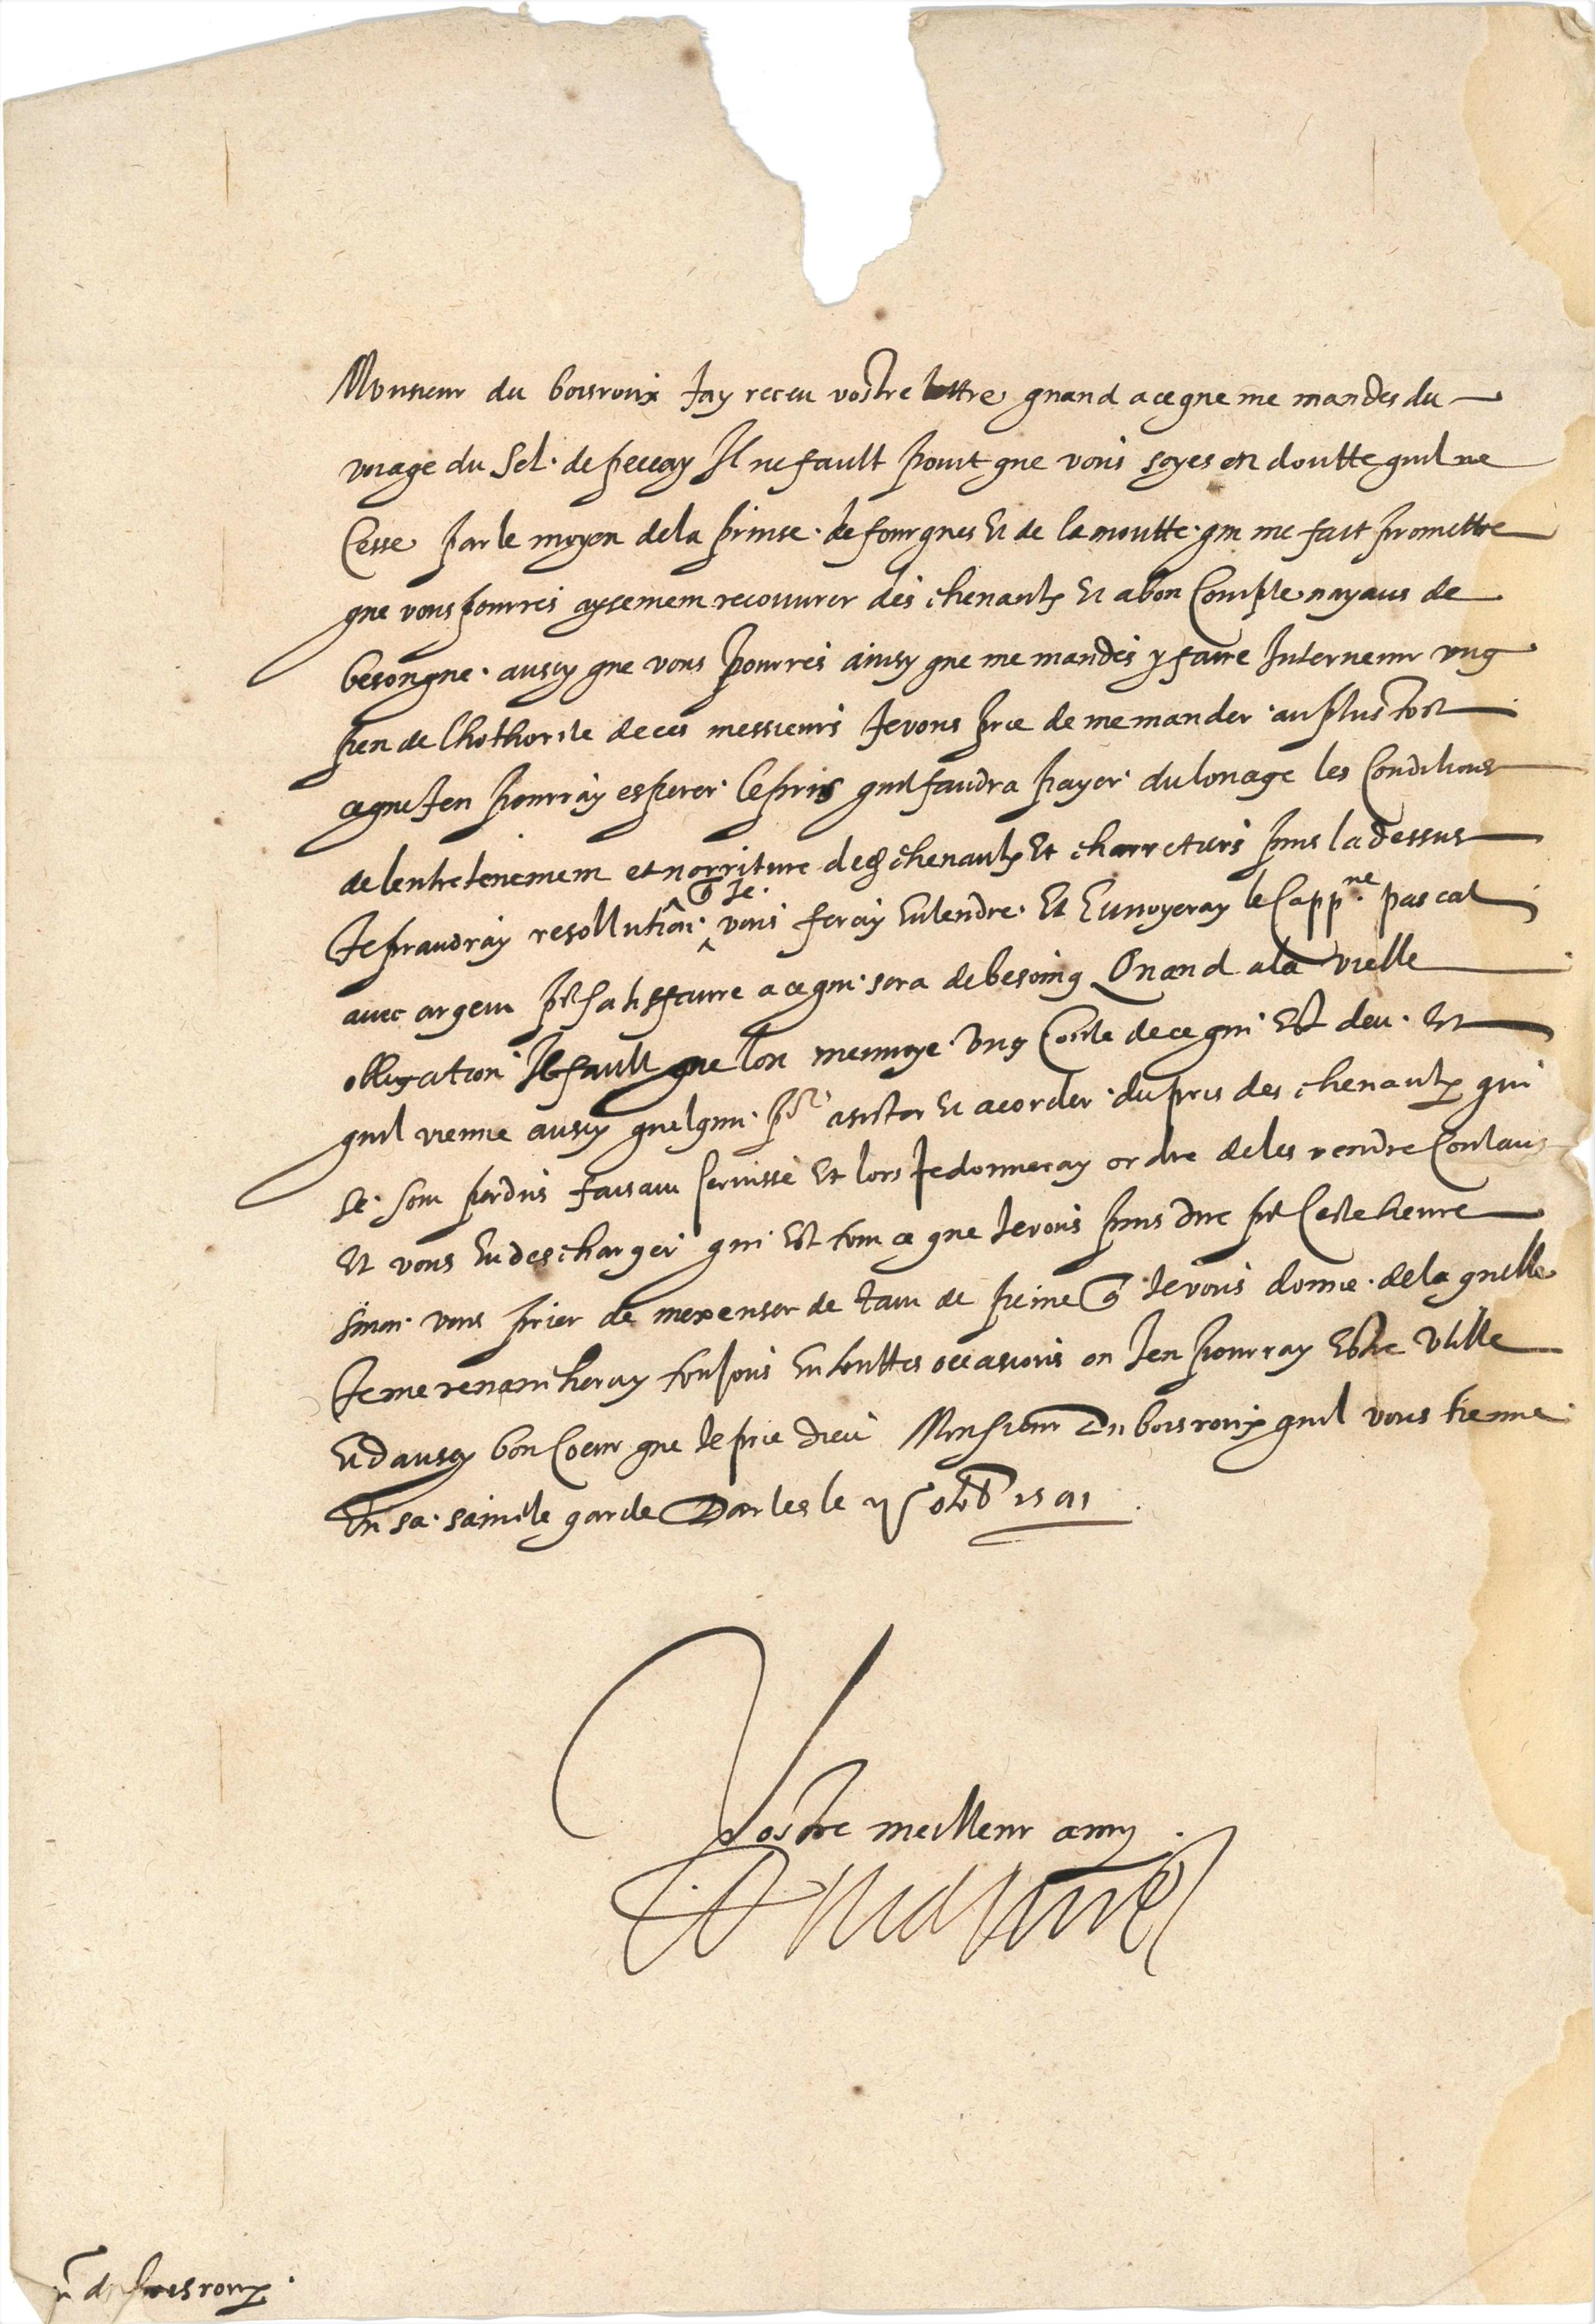 Monsieur du boisroux Jay receu vostre lettre quand a ce que me mandes du
voiage du Sel de peccay Il ne fault point que vous soyes en doutte quil ne
Cesse par le moyen de la prinse de fourques et de la moutte qui me faict promettre
que vous pourres aysement recouvrer des chevaulx et a bon Compte nayans de
besongne aussy que vous pourres ainsy que me mandes y faire Intervenir ung
peu de lhothorite de ces messieurs Je vous prie de me mander au plus tost
ce que Jen pourray esperer le pris quil faudra payer du louage les Conditions
de lentretenement et norriture des chevaulx Et charretiers puis la dessus
Je prandray resollution q̃ Je vous feray Entendre Et Envoyeray le Cappne pascal
avec argent pr satisffaire a ce qui sera de besoing Quand a la vielle
obligation Il fault que lon menvoye ung Conte de ce qui Est deu Et
quil vienne aussy quelqun pr asister et acorder du pris des chevaulx qui
se sont perdus faisant servisse Et lors Je donneray ordre de les rendre Contans
Et vous En descharger qui Est tout ce que Je vous puis dire pr Ceste heure
sinon vous prier de mexcuser de tant de peine q̃ Je vous donne de laquelle
Je me revancheray toujous En touttes occasions ou Jen pourray Estre Utille
Et daussy bon Coeur que Je prie dieu Monsieur Du boisroux quil vous tienne
En sa saincte garde Darles le octb 1591
Vostre meilleur amy
Mr du boesroux